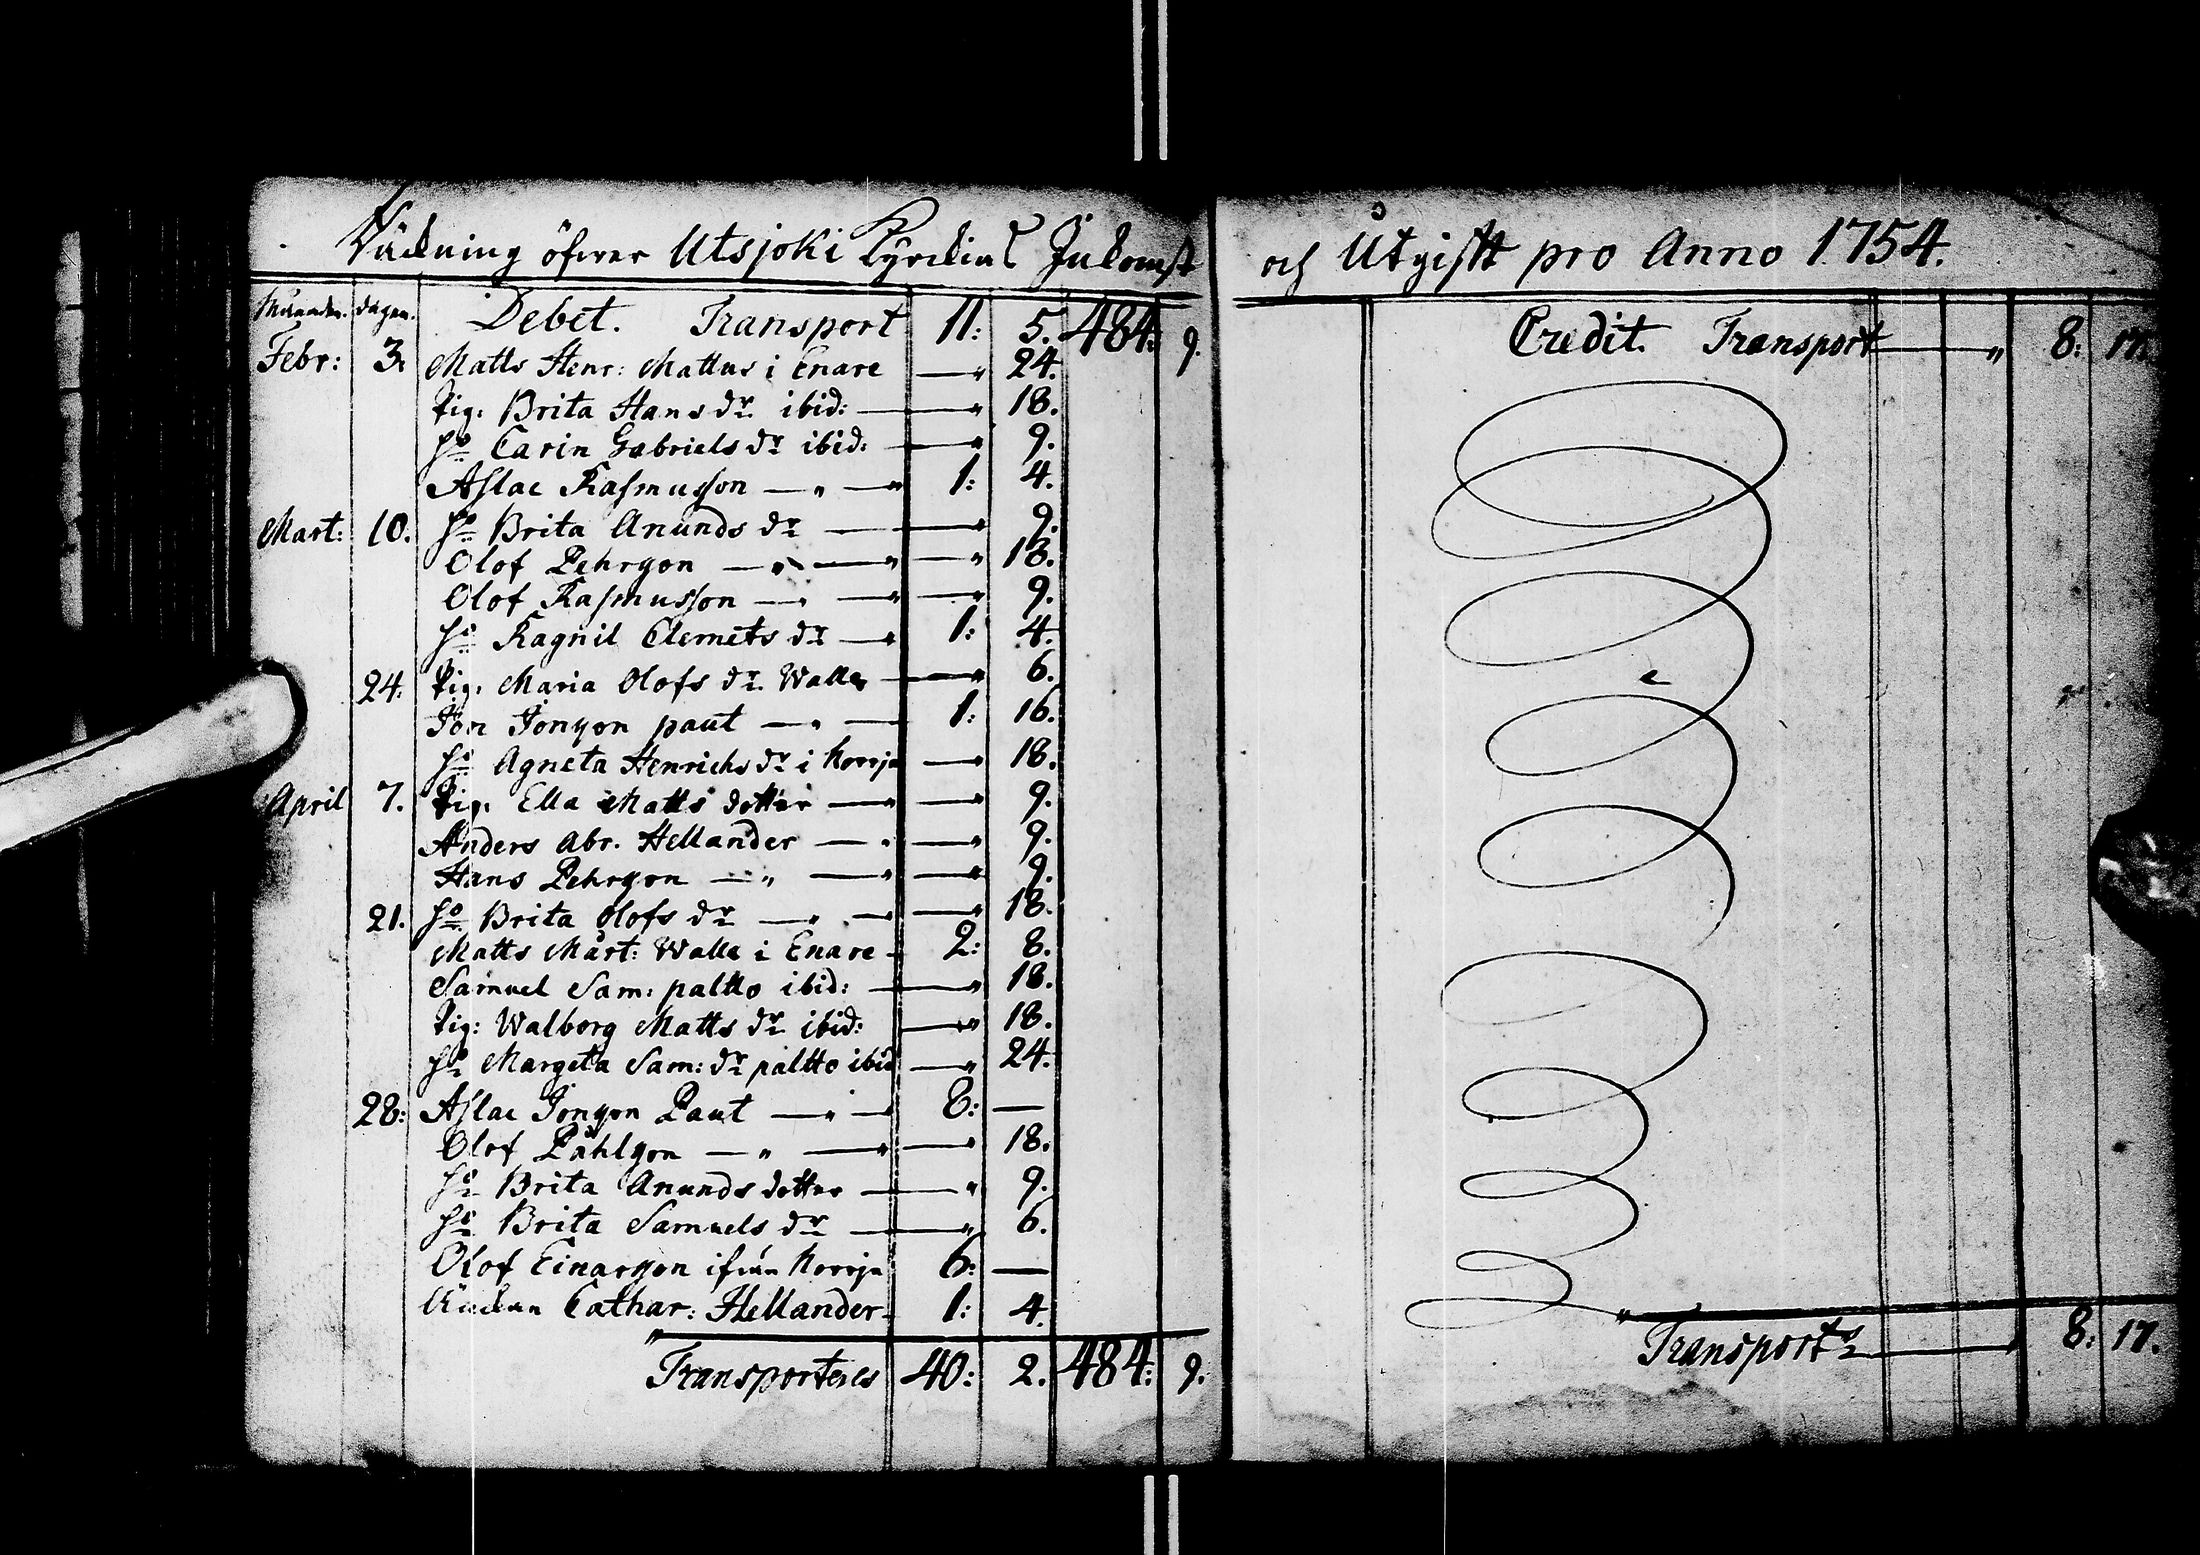 Räckning öfwer Utsjoki Kyrckias Inkomst och Utgifft pro Anno 1754.
Månaden. dagen. Debet. Transport 11: 5. 484: 9.
Febr: 3. Matts Henr: Mattus i Enare — " 24.
Pig: Brita Hans dr ibid: — " 18.
Ho Carin Gabriels dr ibid: — " 9.
Aslac Rasmusson — " — " 1: 4.
Mart: 10. Ho Brita Anunds dr — — " 9.
Olof Pehrson — " — " — " 18.
Olof Rasmusson — " — " — " 9.
Ho Ragnil Clemets dr — " 1: 4.
24. Pig: Maria Olofs dr Walle — " 6.
Jon Jonson paut — " — 1: 16.
Ho Agneta Henrichs dr i Norrje — " 18.
April 7. Pig: Ella Matts dotter — " — " 9.
Anders Abr. Hellander — " — " 9.
Hans Pehrson — " — " — " 9.
21. Ho Brita Olofs dr — " — " — " 18.
Matts Mårt: Walle i Enare - 2: 8.
Samuel Sam: paltto ibid: — " 18.
Pig: Walborg Matts dr ibid: — " 18.
Ho Margeta Sam: dr paltto ibid — " 24.
28: Aslac Jonson Paut — " — 8: —
Olof Påhlson — " — " — " 18.
Ho Brita Anunds dotter — — " 9.
Ho Brita Samuels dr — — " 6.
Olof Einarson ifrån Norrje 6: —
Cathar: Hellander - 1: 4.
Transporteres 40: 2. 484: 9.
Credit. Transport — " 8: 17.
Transports — 8: 17.